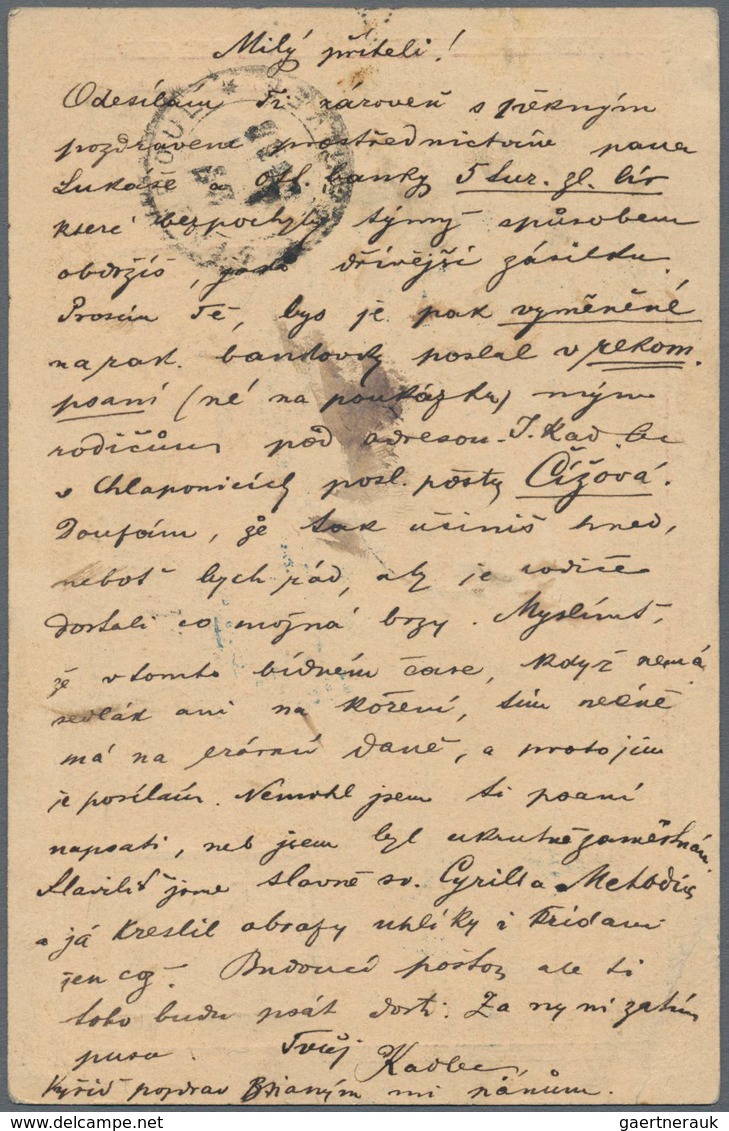 Milý příteli!
Odesílám Ti zároveň s pěkným
pozdravem prostřednictvím pana
Lukáše a Ott. banky 5 tur. zl. lir
které bezpochyby týmž spůsobem
obdržíš, jako dřívější zásilku.
Prosím Tě, bys je pak vyměněné
na rak. bankovky poslal v rekom.
psaní (né na poukázku) mým
rodičům pod adresou J. Kadlec
v Chlaponicích posl. pošty Čížová.
Doufám, že tak učiníš hned,
neboť bych rád, aby je rodiče
dostali co možná brzy. Myslímť,
že v tomto bídném čase, když nemá
sedlák ani na koření, tím méně
má na erární daně, a proto jim
je posílám. Nemohl jsem ti psaní
napsati, neb jsem byl ukrutně zaměstnán.
Slaviliť jsme slavně sv. Cyrilla Methoda
a já kreslil obrazy uhlíky i křídami
jen což. Budoucí poštou ale ti
toho budu psát dosti. Za nyní zatím
pusu Tvůj Kadlec
Vyřiď pozdrav mi pánům.
gaertnerauk